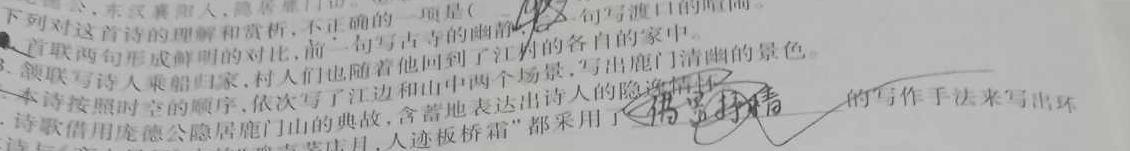 德公,东汉襄阳人,隐居鹿门山
下列对这首诗的理解和赏析,不正确的一项是(
首联两句形成鲜明的对比,前一句写古寺的幽静,一句写渡口的喧闹。
颔联写诗人乘船归家,村人们也随着他回到了江村的各自的家中。
本诗按照时空的顺序,依次写了江边和山中两个场景,写出鹿门清幽的景色。
诗歌借用庞德公隐居鹿门山的典故,含蓄地表达出诗人的隐逸情怀
诗与 月,人迹板桥霜”都采用了 借景抒情 的写作手法来写出环